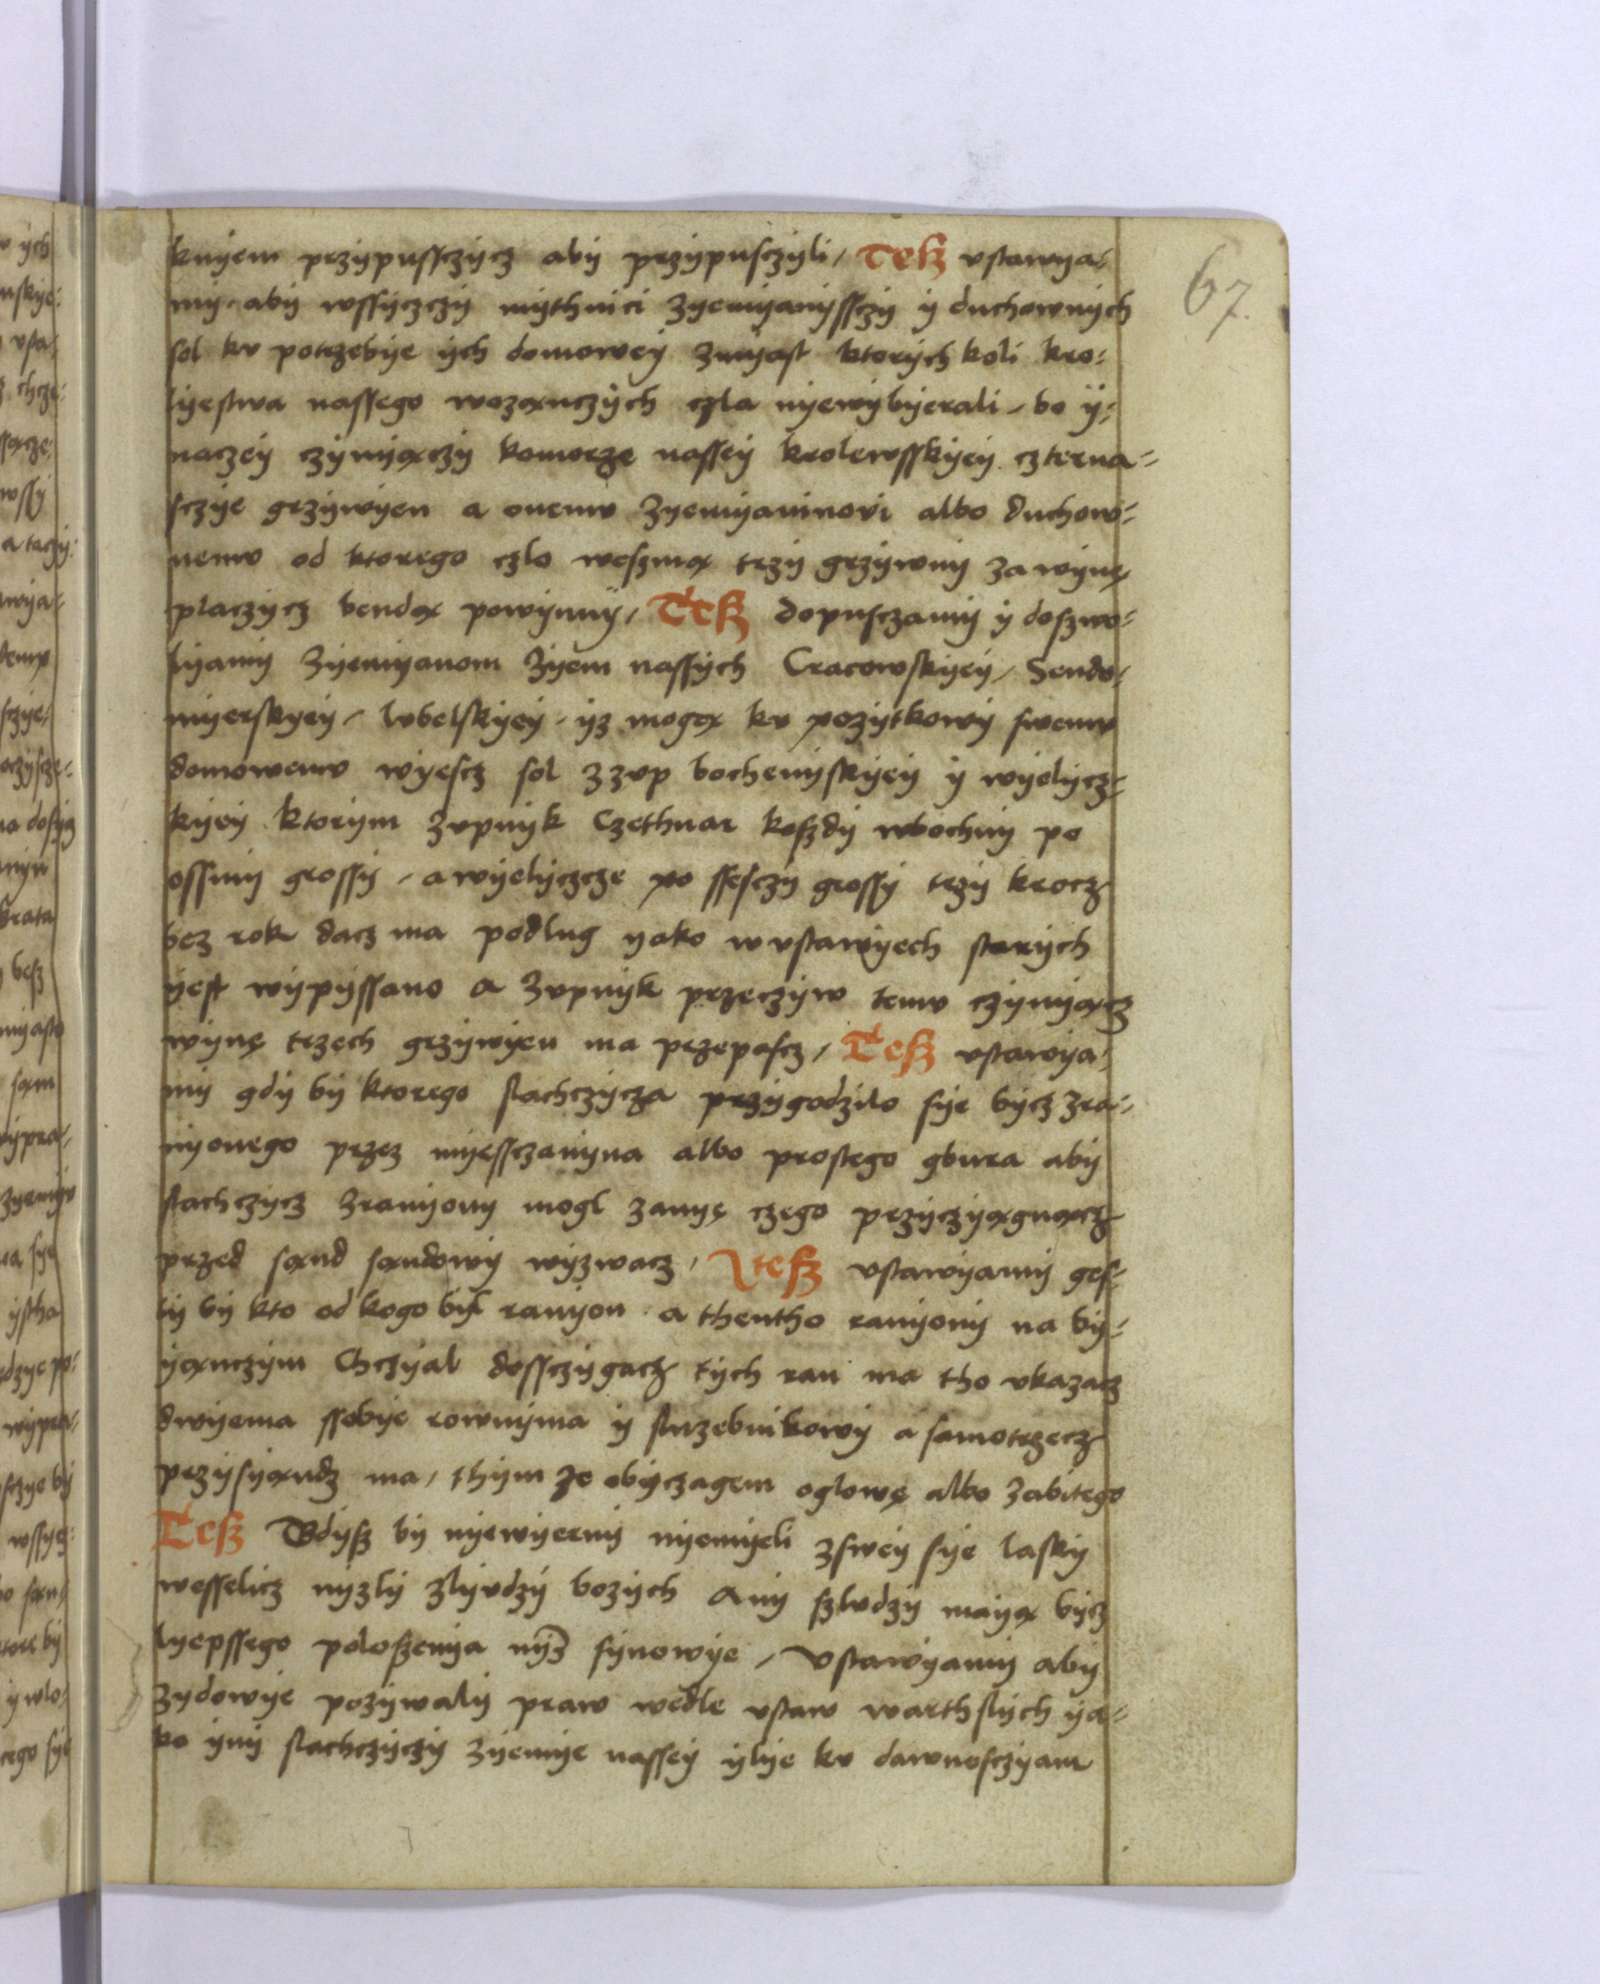 knyem przypusczycz aby przypusczyli / Tesz vstawya-
my aby wssyczczy mythnici zyemyanysczy y duchownych
sol kv potrzebye ych domowey zmyast ktorych koli kro-
lyestwa nassego wozønczych czla nyewybyerali / bo y-
naczey czynyøczy komorze nassey krolewsskyey czterna-
sczye grzywyen a onemv zyemyaninovi albo duchow-
nemv od ktorego czlo weszmø trzy grzywny za wynę
placzycz bendø powynny / Tesz dopusczamy y doszwo-
lyamy zyemyanom zyem nassych Cracowskyey / Sendo-
myerskyey / lvbelskyey / yz mogø kv pozytkowy swemv
domowemv wyescz sol z zvp bochenyskyey y wyelycz-
kyey ktorym zvpnyk Czethnar koszdy wbochny po
ossmy grossy / a wyelyczcze po ssesczy grossy trzy krocz
bez rok dacz ma podlug yako w vstawyech starych
yest wypyssano a zvpnyk przeczyw temv czynyøcz
wynę trzech grzywyen ma przepascz / Tesz vstawya-
my gdy by ktorego slachczycza przygodzilo sye bycz zra-
nyonego przez myesczanyna albo prostego gbura aby
slachczycz zranyony mogl zanyę czego przyczyøgnøcz
przed sønd søndowy wyzwacz / Ytesz vstawyamy ges-
ly by kto od kogo był ranyon a thentho ranyony na by-
yønczym Chczyal dossczygacz tych ran ma tho vkazacz
dwyema ssobye rownyma y sluzebnikowy a samotrzecz
przysyøndz ma / thym ze obyczagem oglowę albo zabitego
Tesz Gdysz by nyewyerny nyemyeli zswey sye lasky
wesselicz nyzly zlyvdzy bozych Any szlvdzy mayø bycz
lyepssego poloszenya nyz synowye / Vstawyamy aby
zydowye pozywaly praw wedle vstaw warthskych ya-
ko yny slachczyczy zyemye nassey ylye kv dawnosczyam
67.